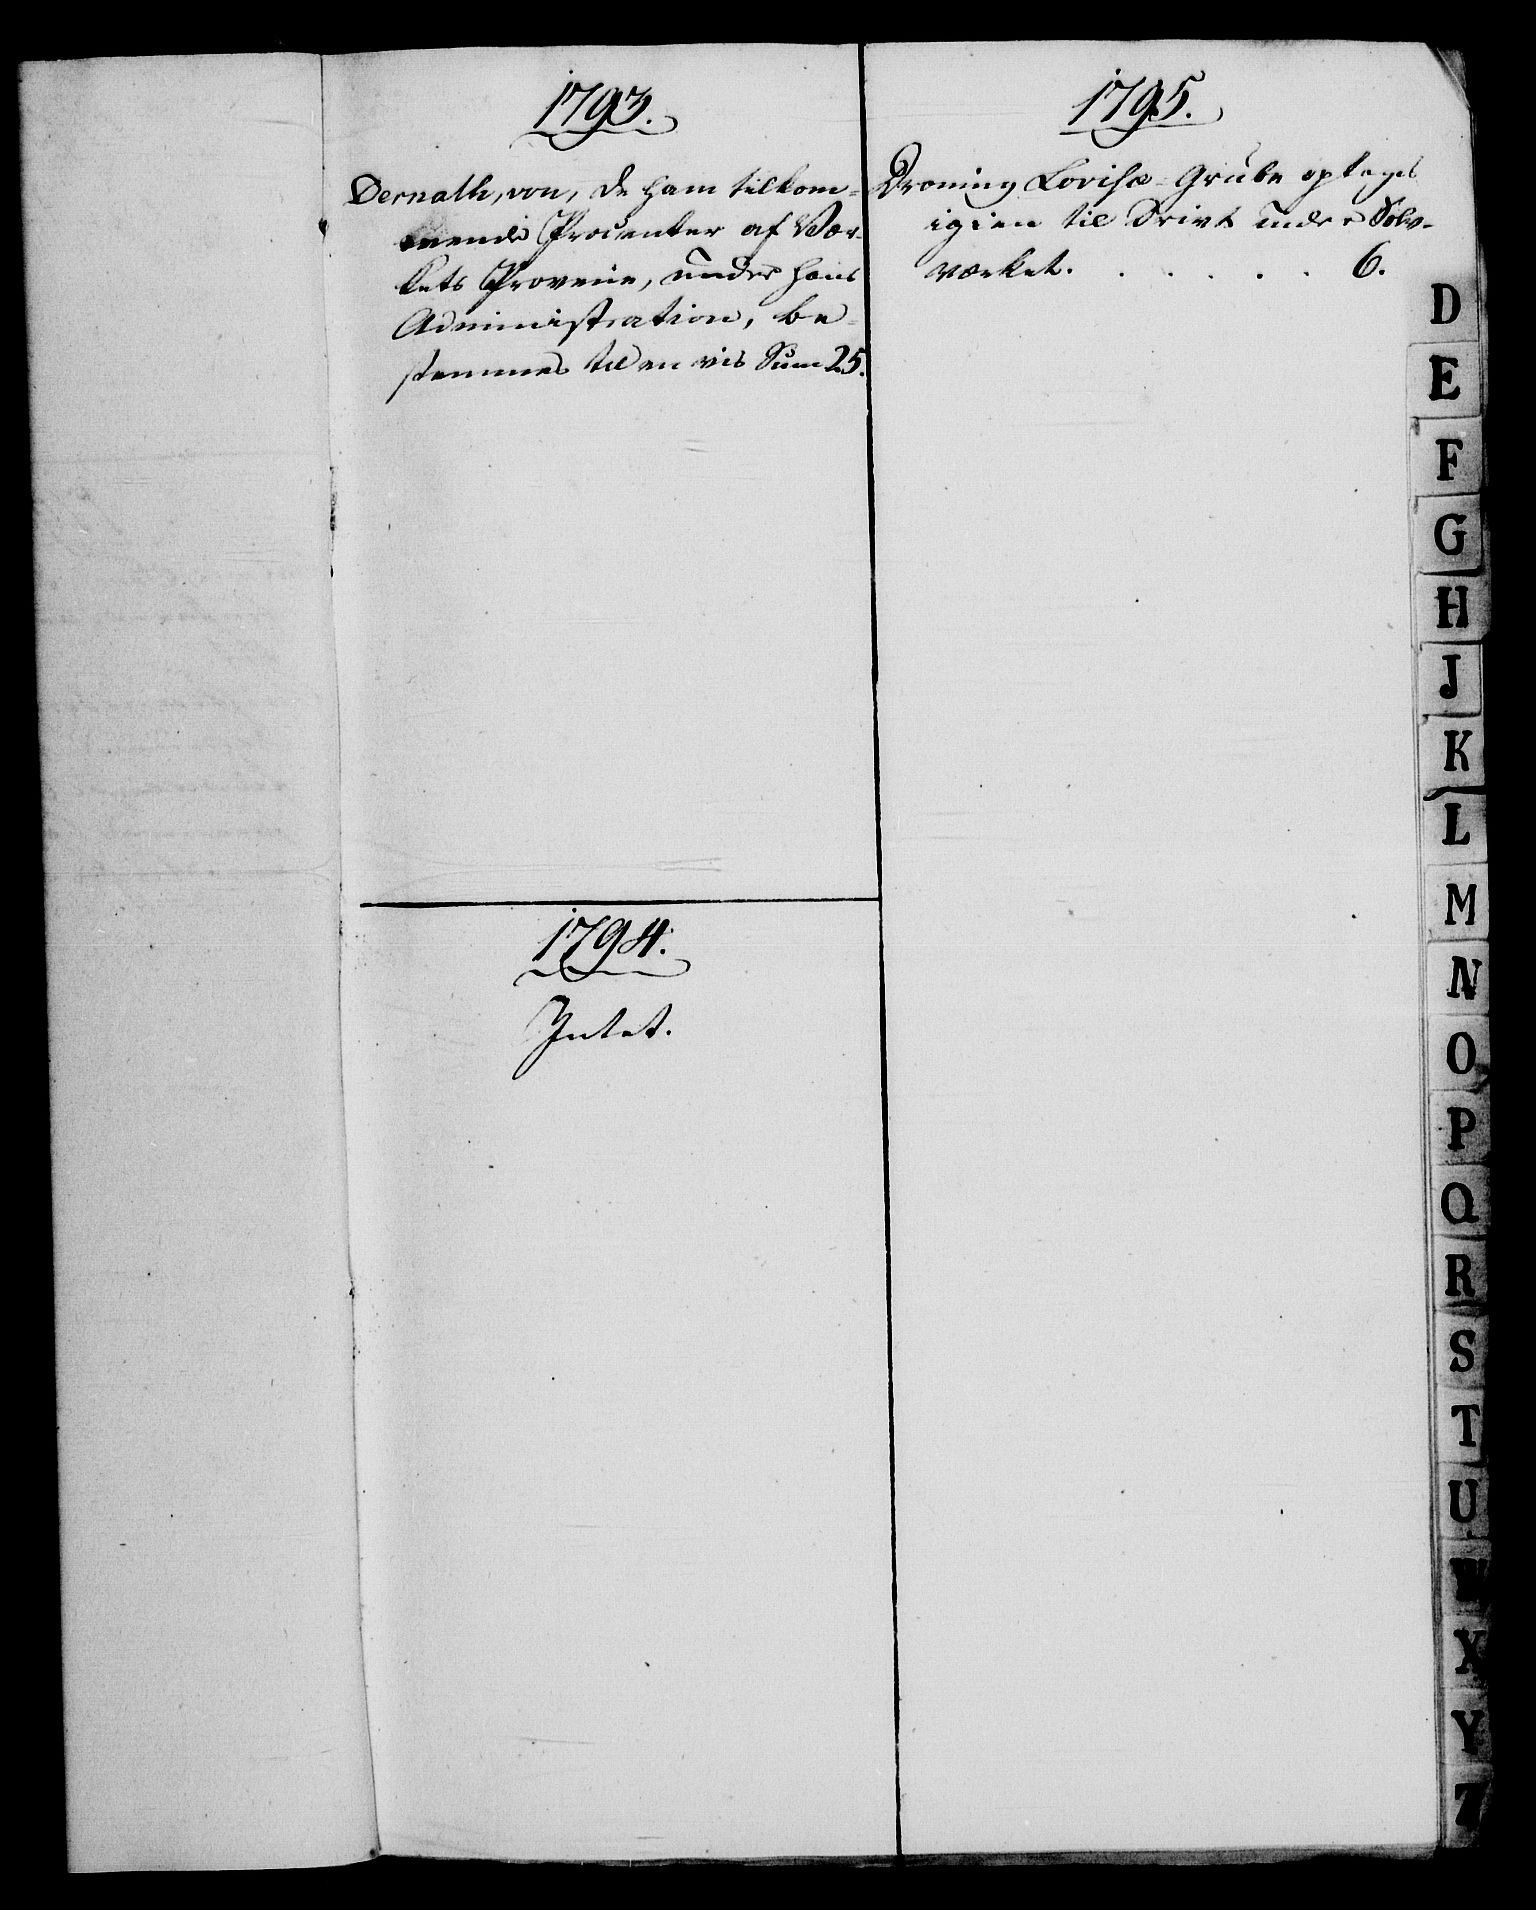 1793.
Dernath, von, de ham tilkom-
mende Procenter af Vær-
kets Provenue, under hans
Administration, be-
stemmes til en vis Sum 25.
1794.
Intet.
1795.
Droning Lovisæ-Grube optages
igien til Drivt under Sølv-
værket. . . . . . 6.
D
E
F
G
H
J
K
L
M
N
O
P
Q
R
S
T
U
W
X
Y
Z